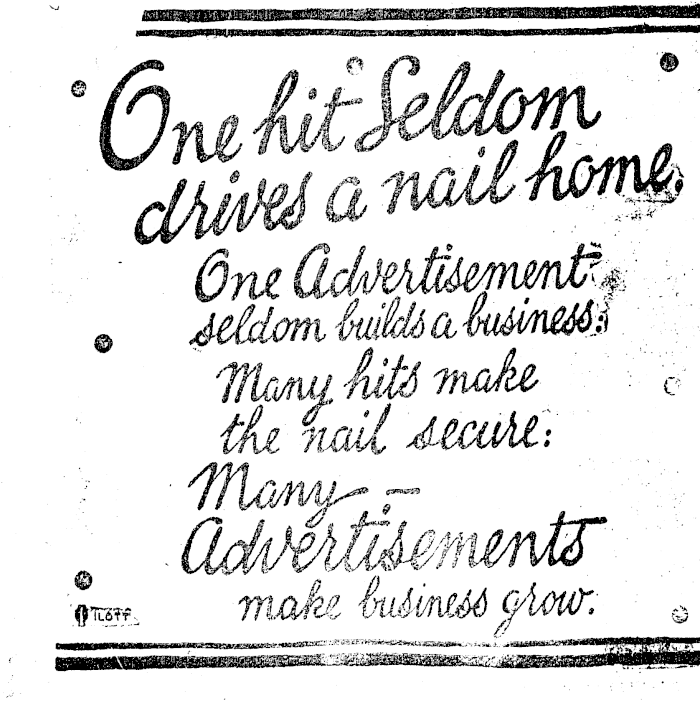 One hit Seldom
drives a nail home.
One Advertisement
seldom builds a business:
Many hits make
the nail secure:
Many —
Advertisements
make business grow.